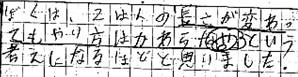 ぼくは、こはんの長さが変わっ
てもやり方はかわらないという
考えになるほどと思いました。